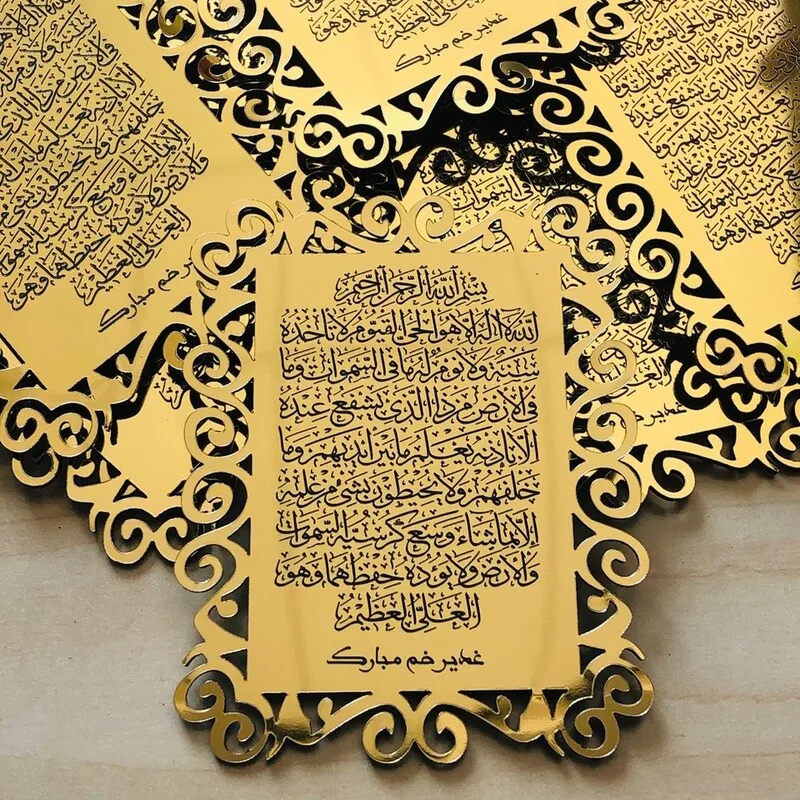 بسم الله الرحمن الرحيم
الله لا اله الا هو الحي القيوم لا تأخذه
سنة ولا نوم له ما في السموات وما
في الارض من ذا الذي يشفع عنده
الا باذنه يعلم ما بين ايديهم وما
خلفهم ولا يحيطون بشئ من علمه
الا بما شاء وسع كرسيه السموات
والارض ولا يؤده حفظهما وهو
العلي العظيم
غدير خم مبارک